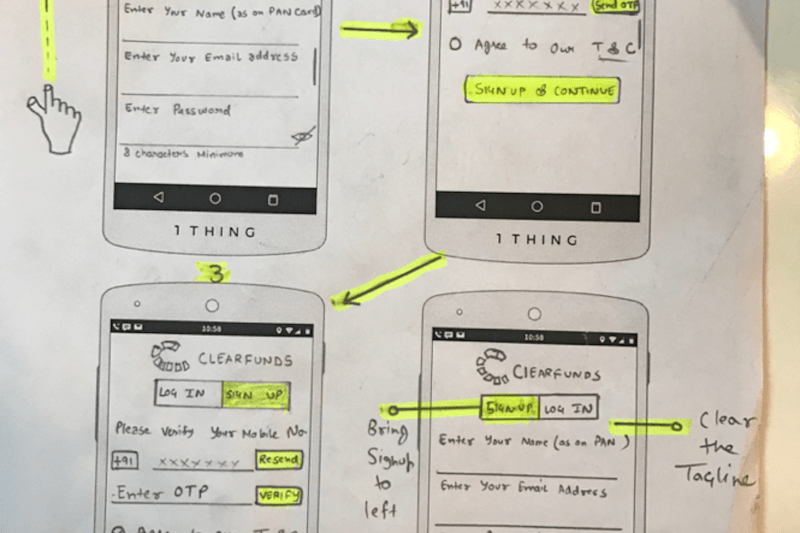 Enter Your Name (as on PAN Card)
Enter Your Email address
Enter Password
8 characters Minimum
1 THING
+91 XXXXXXX Send OTP
Agree to our T & C
SIGN UP & CONTINUE
1 THING
3
10:58
CLEARFUNDS
LOG IN SIGN UP
Please Verify Your Mobile No.
+91 XXXXXXX Resend
Enter OTP VERIFY
Agree to our T & C
10:58
CLEARFUNDS
SIGNUP LOG IN
Enter Your Name (as on PAN)
Enter Your Email Address
Bring
Signup
to
left
Clear
the
Tagline